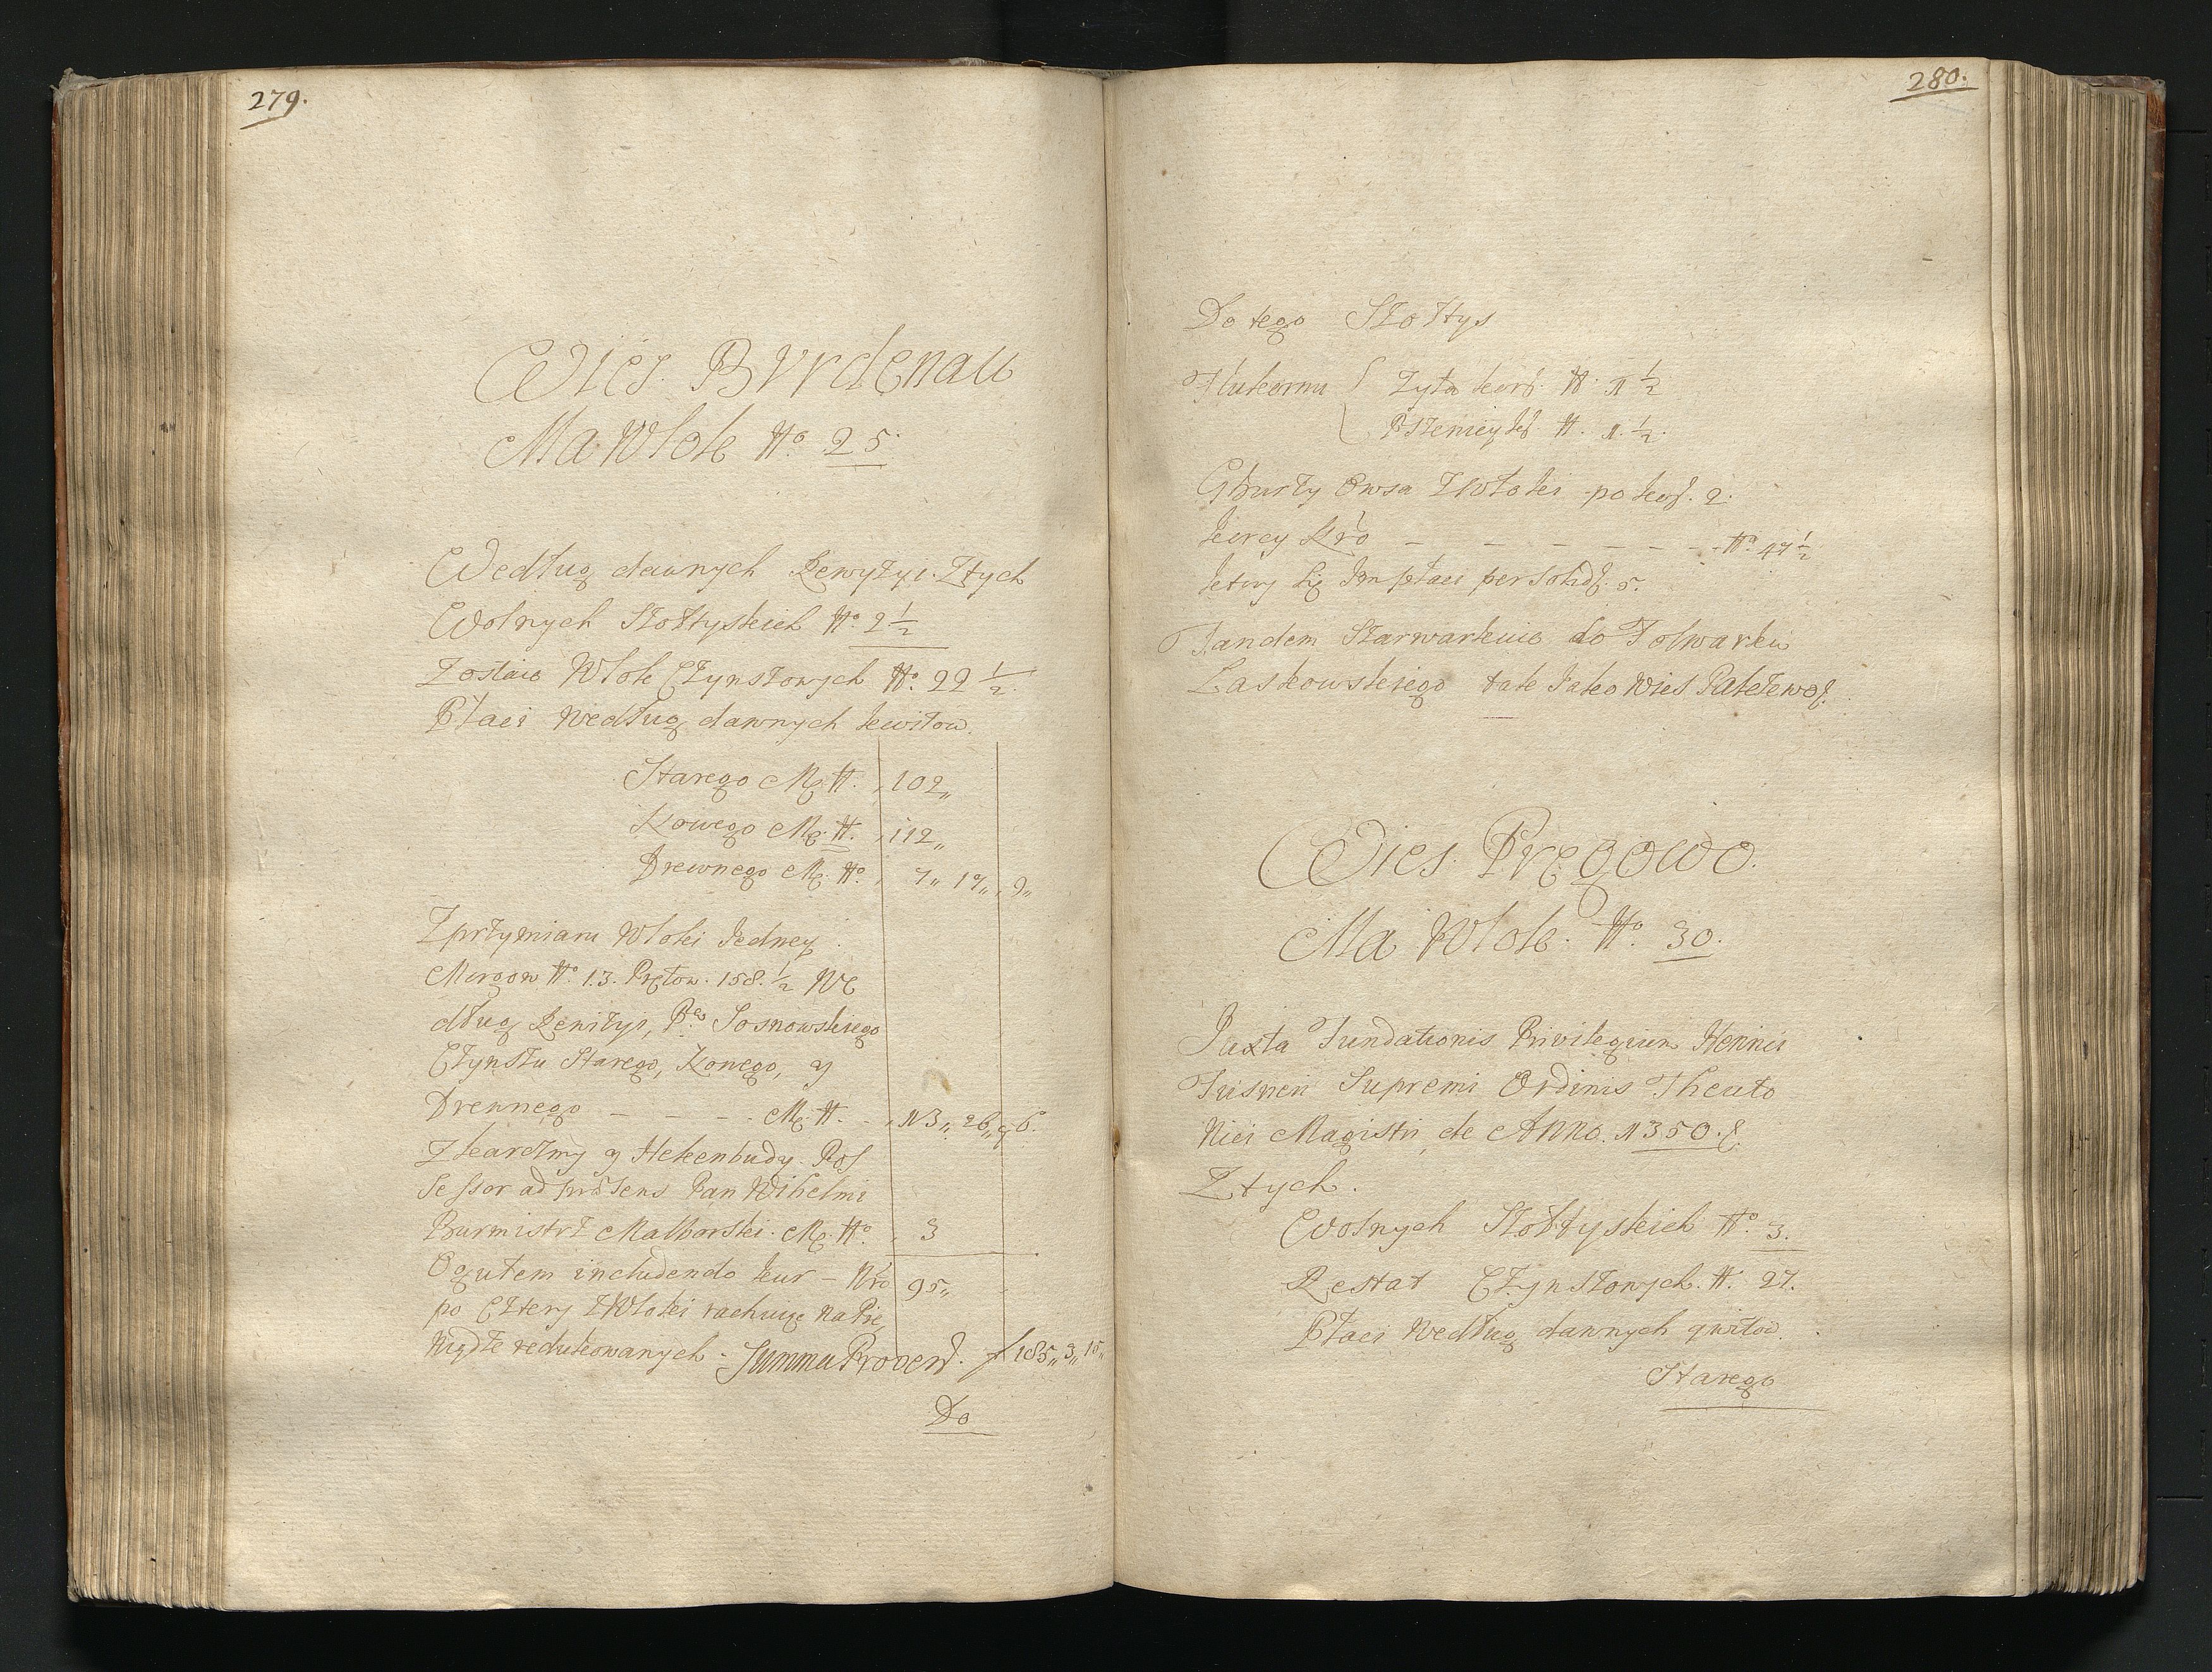 279.
Wies. Byrdenau
Ma Włok No 25.
Według dawnych Rewyzyi. Ztych
Wolnych Szołtyskich No 2 1/2
Zostaie Włok Czynszowych No. 22 1/2.
Płaci według dawnych kwitow.
Starego M. 102„
Nowego M. 112„
Drewnego M. No. 7„ 17„ 9„
Z przymiaru Włoki Jedney.
Morgow No. 13. Prętow. 158. 1/2 We
dług Rewizyi, Pa Sosnowskiego
Czynszu Starego, Nowego, y
Drewnego – – – – M. 13„ 26„ 6.
Z karczmy y Hekenbudy. Pos
sessor ad präsens Pan Wilhelmi
Burmistrz Malborski. M. No. 3
Ogułem includendo kur – Nro 95„
po Cztery z Włoki rachuię na Pie
niądze redukowanych. Summa Provent. f 185„ 3„ 15„
Do
280.
Do tego Szołtys
Płukornu Zyta korc. 1 1/2
Pszenicy 1. 1/2.
Gburzy Owsa z Włoki po korc. 2.
korcy Nro – – – – – – No 47 1/2
Tandem Szarwarkuie do Folwarku
Laskowskiego tak Jako Wies
Wies. Pręgowo.
Ma Włok. No. 30.
Juxta Fundationis Privilegium Henrici
Tusneri Supremi Ordinis Theuto
nici Magistri, de Anno. 1350.
Ztych.
Wolnych Szołtyskich No. 3.
Restat Czynszowych. 27.
Płaci według dawnych qwitow.
Starego